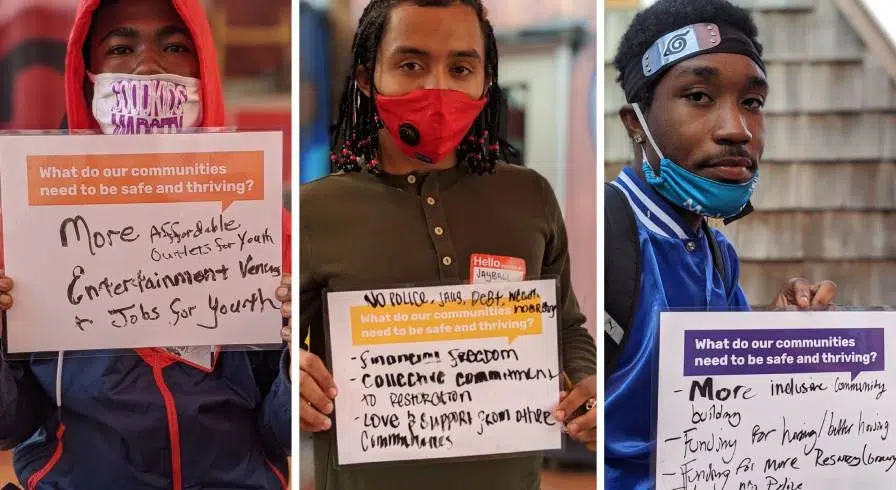 GOODKIDS
MADCITY
What do our communities
need to be safe and thriving?
More Affordable
Outlets for Youth
Entertainment Venues
+ Jobs for Youth
Hello
JAYBALL
NO POLICE, JAILS, DEBT, WEALTH
What do our communities
need to be safe and thriving?
- Financial FREEDOM
- Collective commitment
to RESTORATION
- Love & Support from other
Communities
What do our communities
need to be safe and thriving?
- More inclusive community
building
- Funding for housing/better housing
- Funding for more
not Police